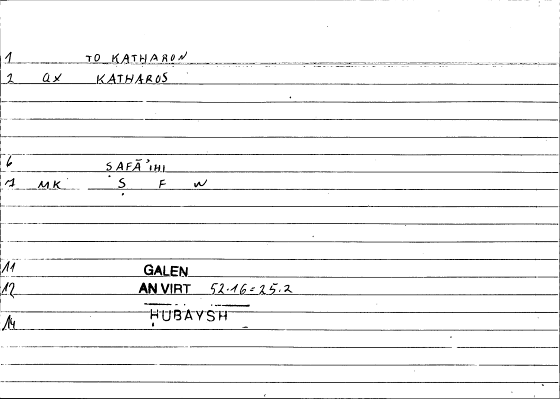 1 TO KATHARON
2 ax KATHAROS
6 ṢAFĀʾIHI
7 MK Ṣ F W
11 GALEN
12 AN VIRT 52.16=25.2
14 ḤUBAYSH